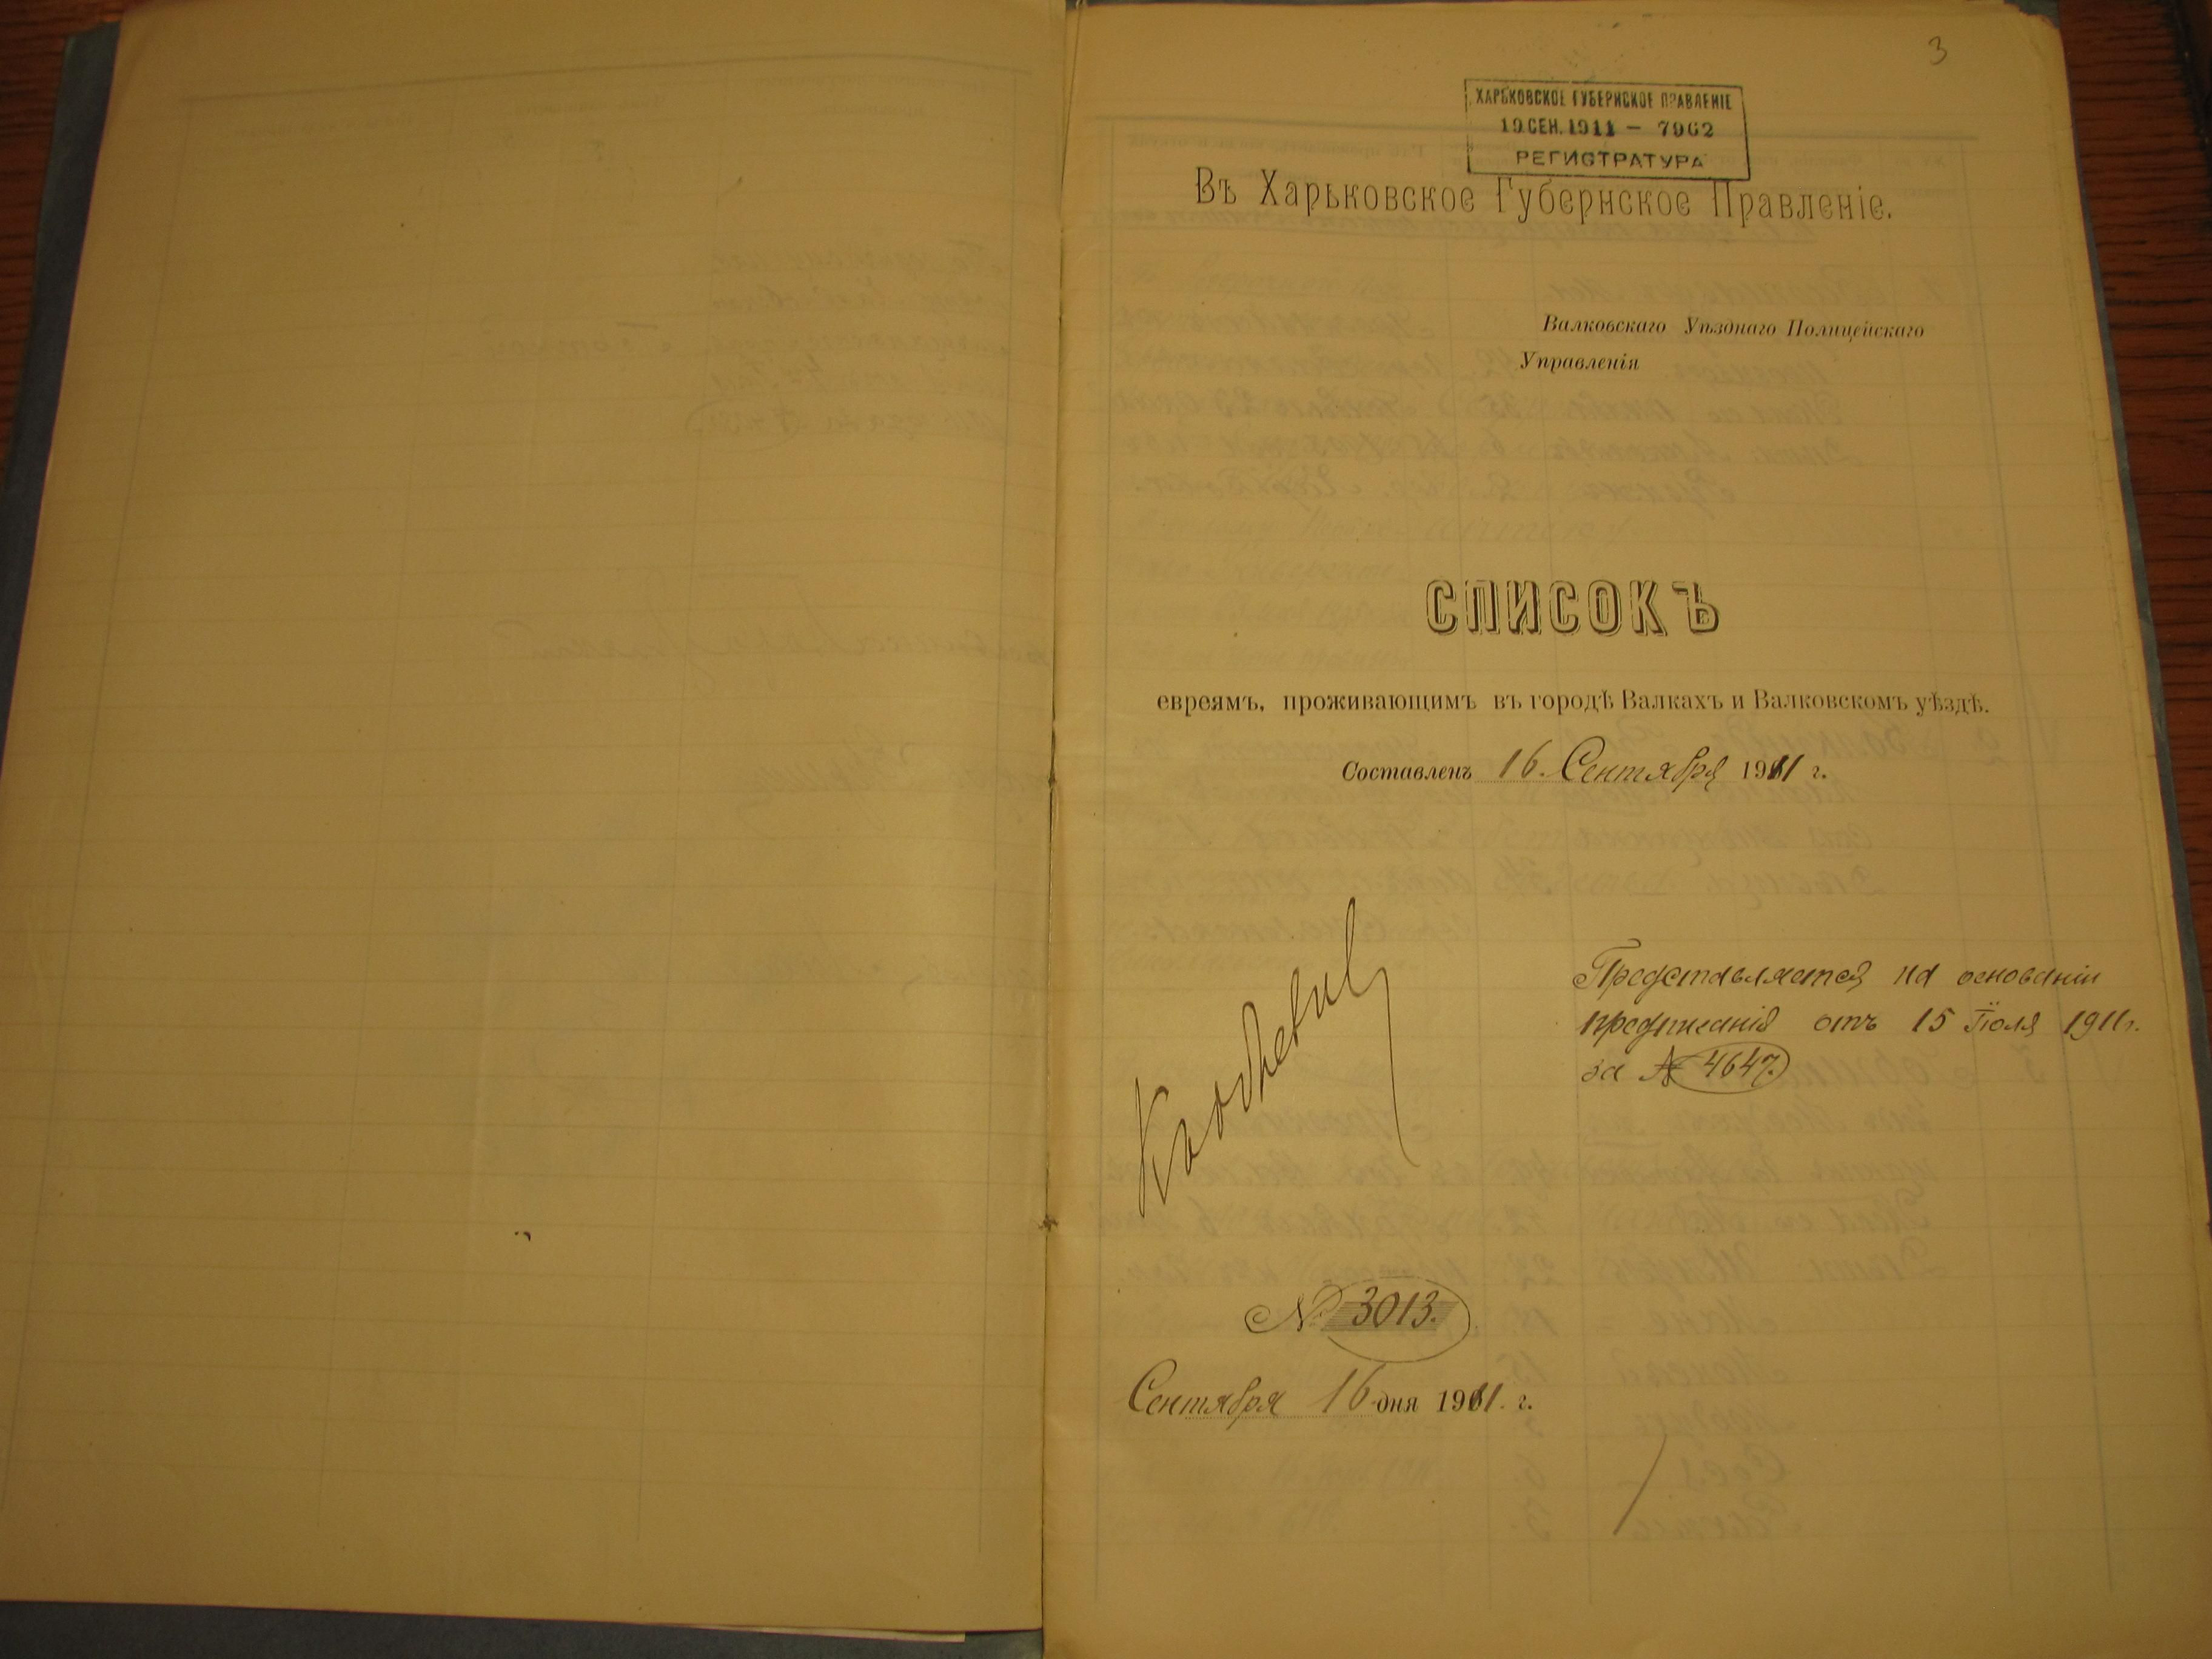 3
ХАРЬКОВСКОЕ ГУБЕРНСКОЕ ПРАВЛЕНІЕ
19 СЕН. 1911 — 7962
РЕГИСТРАТУРА
Въ Харьковское Губернское Правленіе.
Валковскаго Уѣзднаго Полицейскаго
Управленія
СПИСОКЪ
евреямъ, проживающимъ въ городѣ Валкахъ и Валковскомъ уѣздѣ.
Составленъ 16. Сентября 1911 г.
Представляется на основаніи
предписанія отъ 15 Іюля 1911 г.
за № 4647.
№ 3013.
Сентября 16 дня 1911. г.